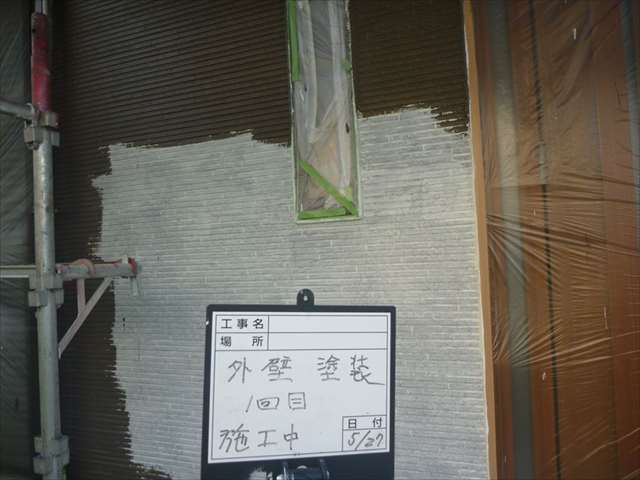 工事名
場所
外壁 塗装
1回目
施工中
日付
5/27